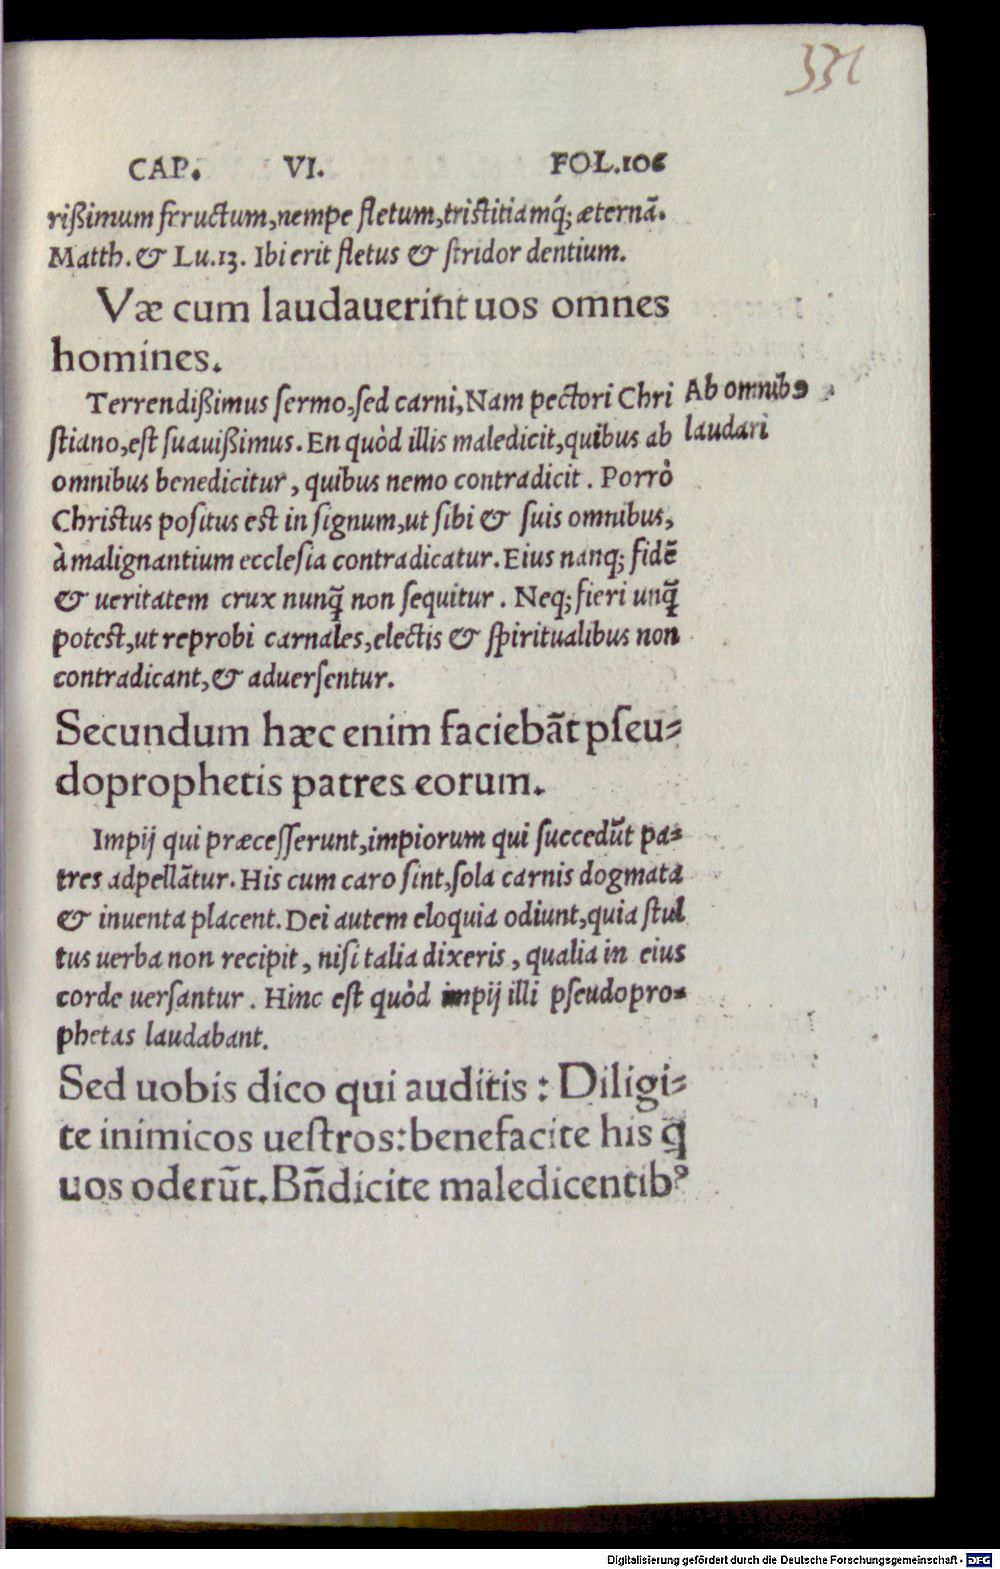 331
CAP. VI. FOL.106
rißimum fructum,nempe fletum,tristitiamq́; æternā.
Matth. & Lu.13. Ibi erit fletus & ſtridor dentium.
Væ cum laudauerint uos omnes
homines.
Terrendißimus ſermo,ſed carni,Nam pectori Chri
Ab omnibꝰ
ſtiano,eſt ſuauißimus. En quòd illis maledicit,quibus ab
laudari
omnibus benedicitur, quibus nemo contradicit. Porrò
Chriſtus poſitus eſt in ſignum,ut ſibi & ſuis omnibus,
à malignantium eccleſia contradicatur. Eius nanq; fidē
& ueritatem crux nunq̃ non ſequitur. Neq; fieri unq̃
poteſt,ut reprobi carnales,electis & ſpiritualibus non
contradicant,& aduerſentur.
Secundum hæc enim faciebāt pſeu⸗
doprophetis patres eorum.
Impij qui præceſſerunt,impiorum qui ſuccedūt pa⸗
tres adpellātur. His cum caro ſint,ſola carnis dogmata
& inuenta placent. Dei autem eloquia odiunt,quia ſtul
tus uerba non recipit, niſi talia dixeris, qualia in eius
corde uerſantur. Hinc eſt quòd impij illi pſeudopro⸗
phetas laudabant.
Sed uobis dico qui auditis : Diligi⸗
te inimicos ueſtros:benefacite his q̃
uos oderūt. Bñdicite maledicentibꝰ
Digitalisierung gefördert durch die Deutsche Forschungsgemeinschaft - DFG